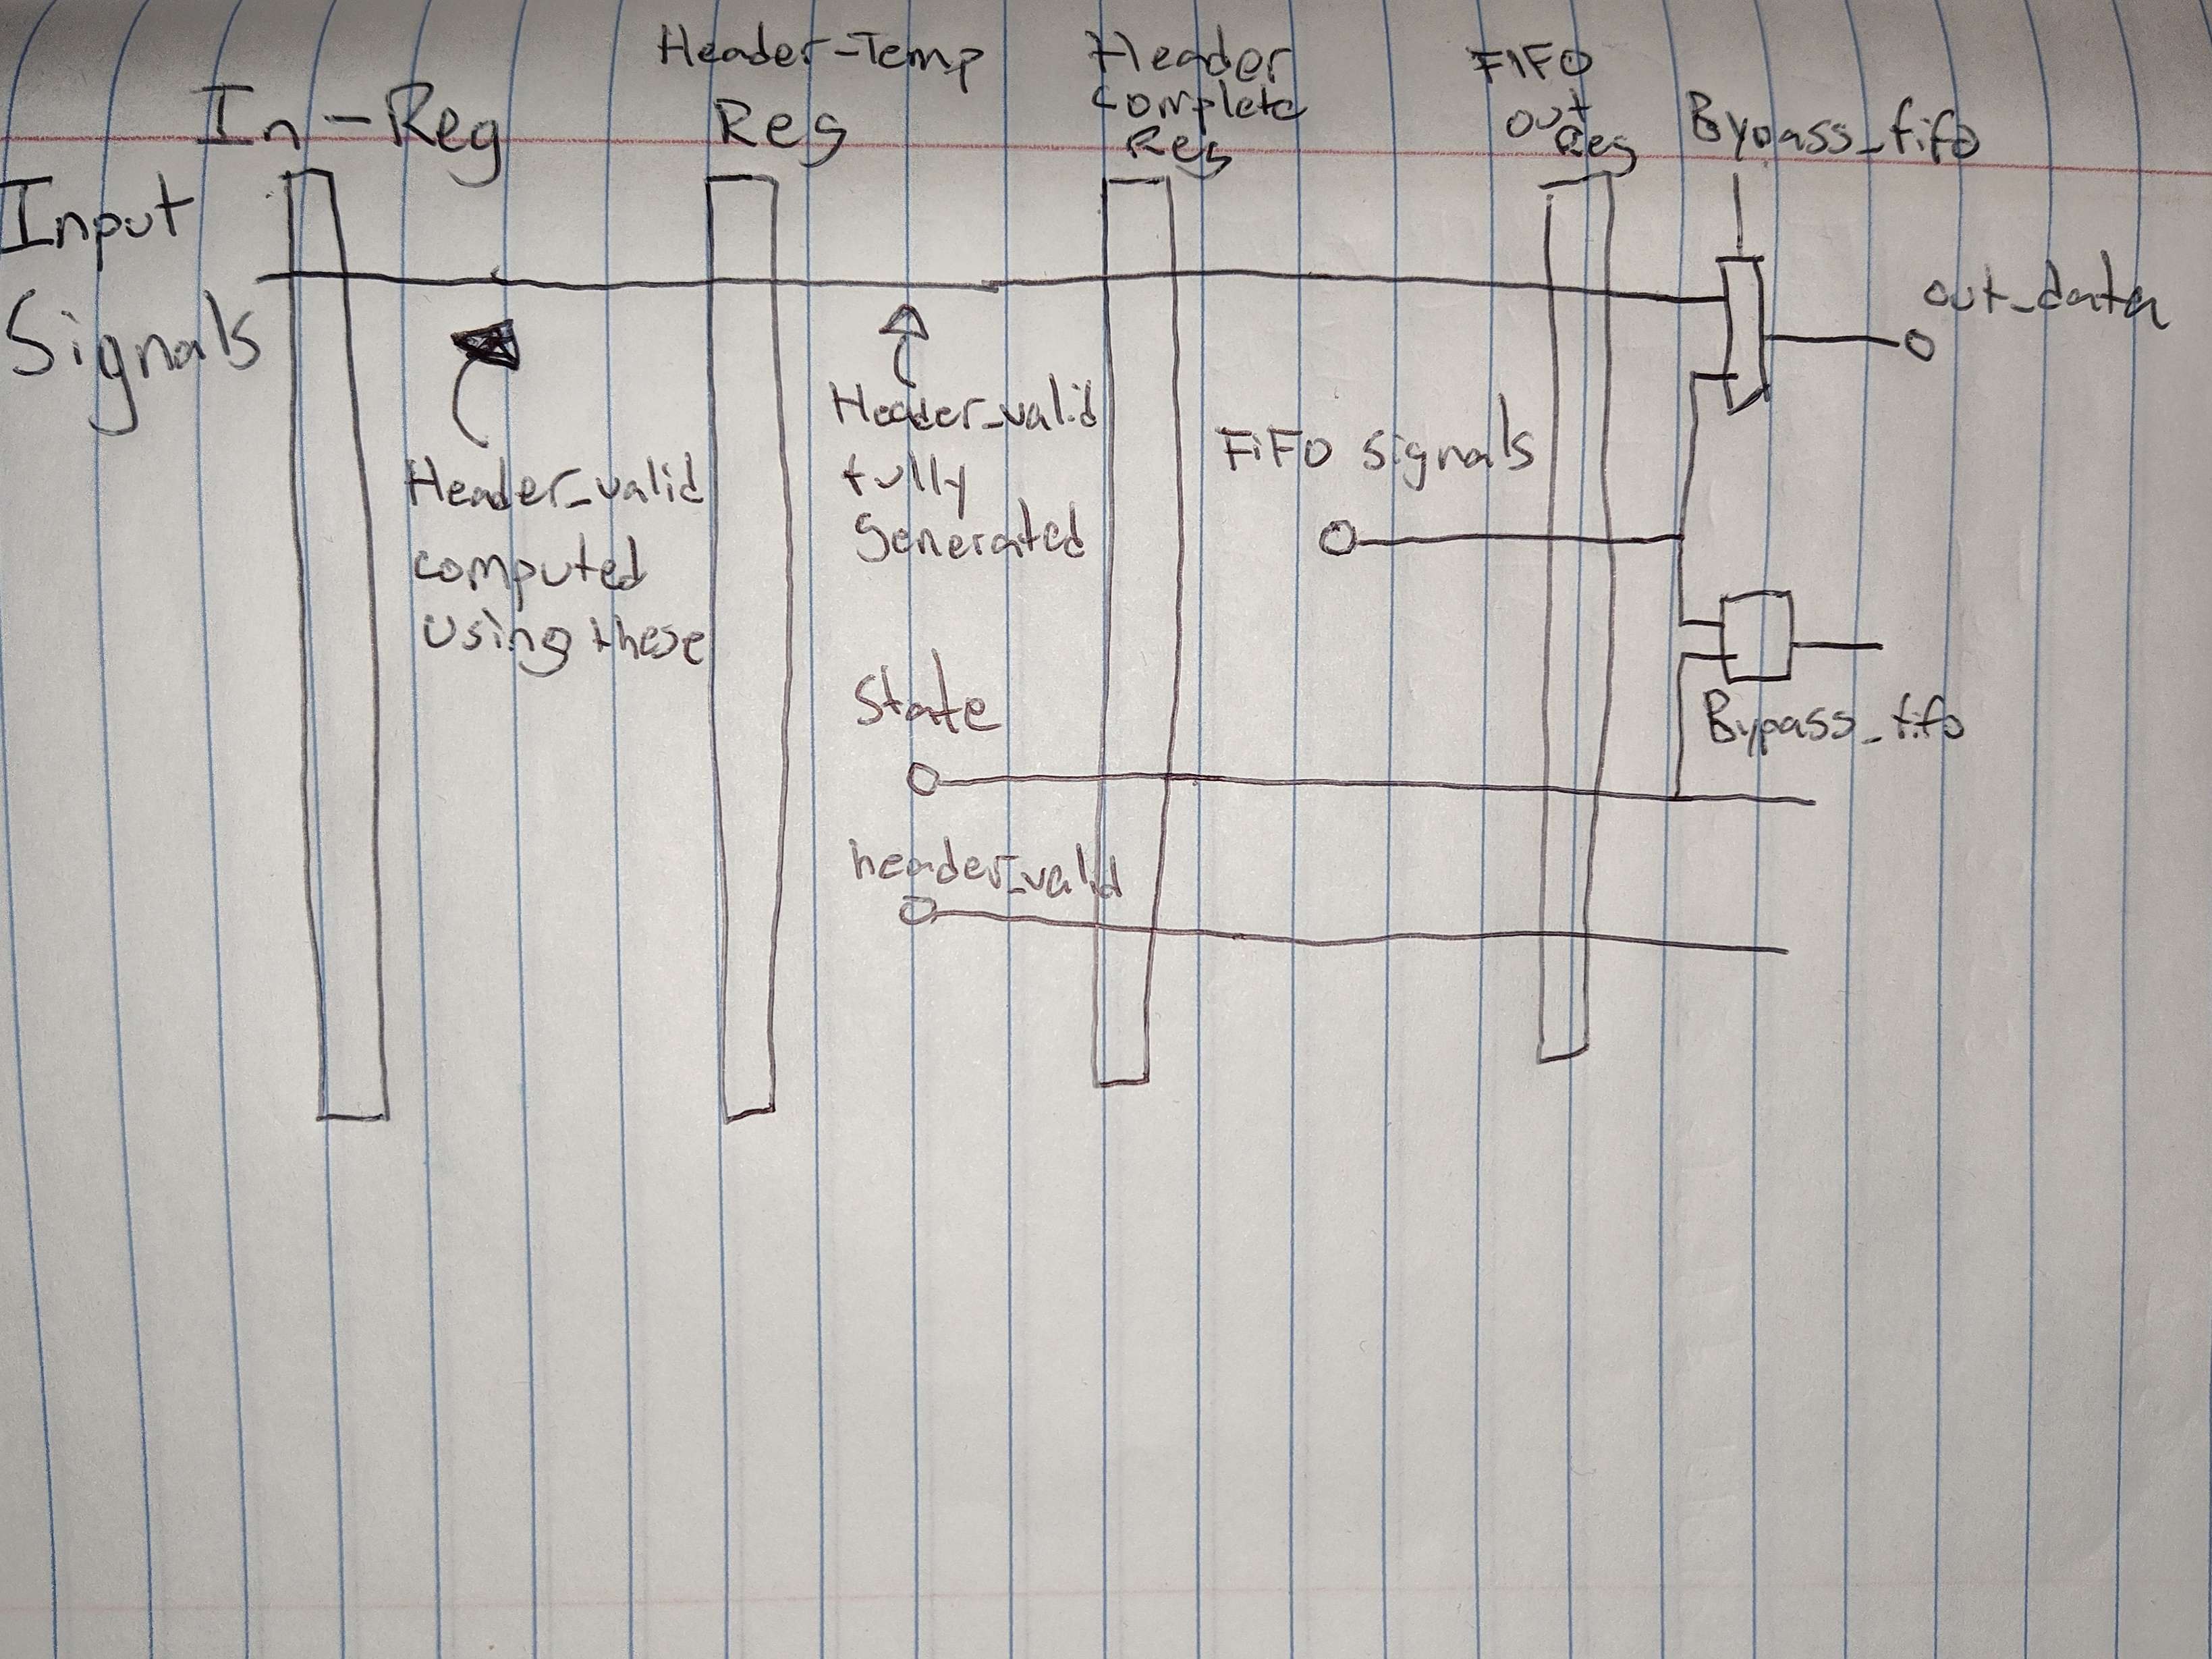 In-Reg
Header-Temp
Reg
Header
Complete
Reg
FIFO
out
Reg
Bypass_fifo
Input
Signals
out_data
Header_valid
computed
Using these
Header_valid
fully
Generated
FiFO signals
State
Bypass_fifo
header_valid